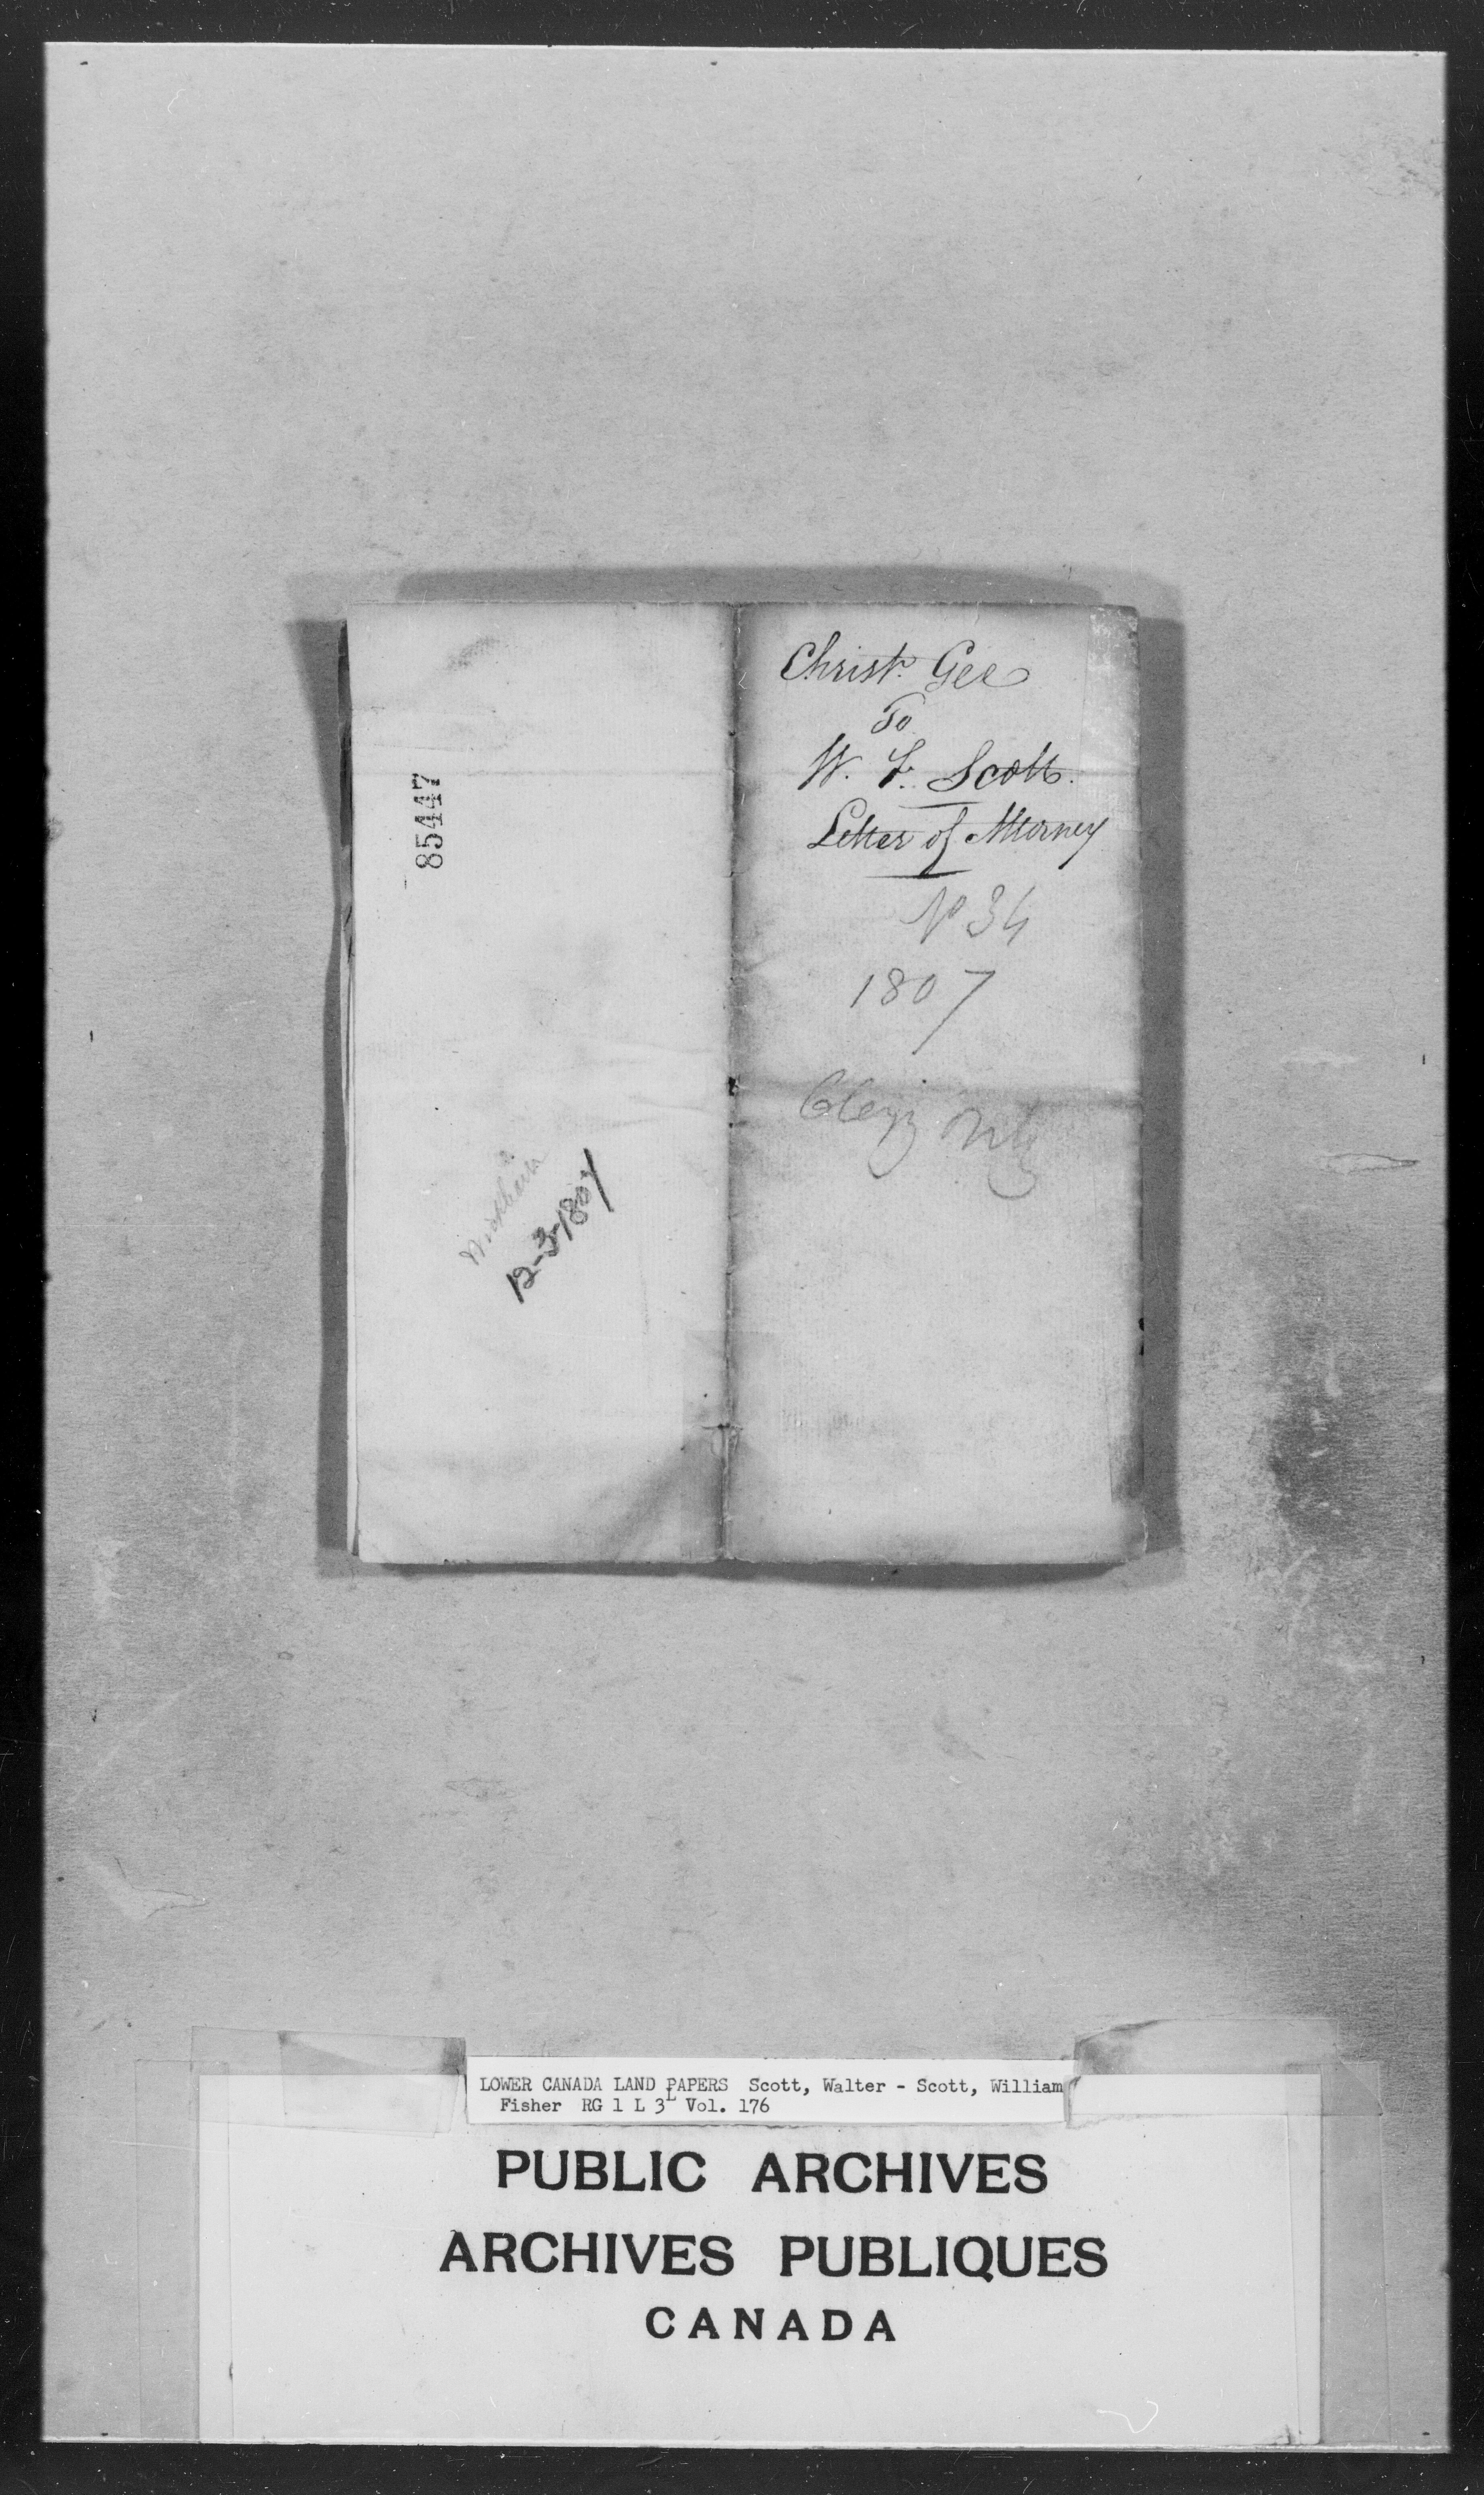 85447
12-3-1807
Christr. Gee
To
W. F. Scott.
Letter of Attorney
No 34
1807
LOWER CANADA LAND PAPERS Scott, Walter - Scott, William
Fisher RG 1 L 3L Vol. 176
PUBLIC ARCHIVES
ARCHIVES PUBLIQUES
CANADA